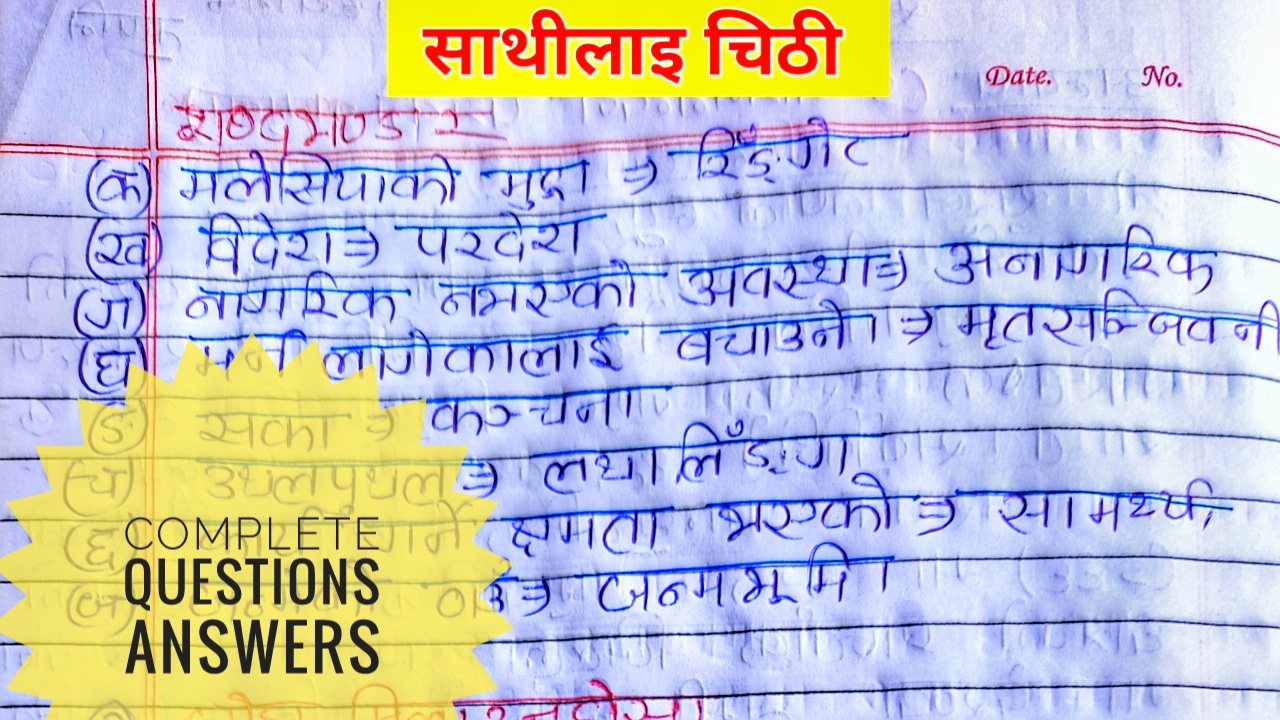 साथीलाइ चिठी
Date. No.
शब्दभण्डार
(क) मलेसियाको मुद्रा ⇒ रिङ्गेट
(ख) विदेश ⇒ परदेश
(ग) नागरिक नभएको अवस्था ⇒ अनागरिक
(घ) लागेकालाई बचाउने ⇒ मृतसञ्जिवनी
(ङ) सका ⇒ कञ्चना
(च) उथलपुथल ⇒ लथालिँङ्ग
(छ) गर्ने क्षमता भएको ⇒ सामर्थ्य
⇒ जन्मभूमि
COMPLETE
QUESTIONS
ANSWERS